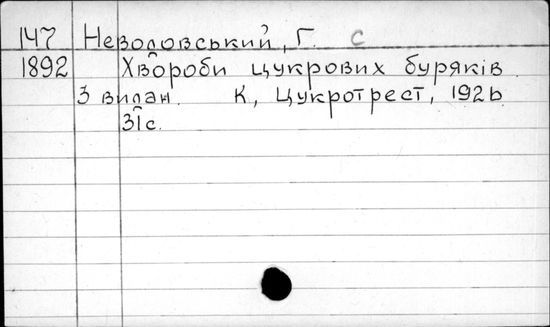 147 Неводовський, Г. С
1892 Хвороби цукрових буряків.
3 видан. К, Цукротрест, 1926
31с.